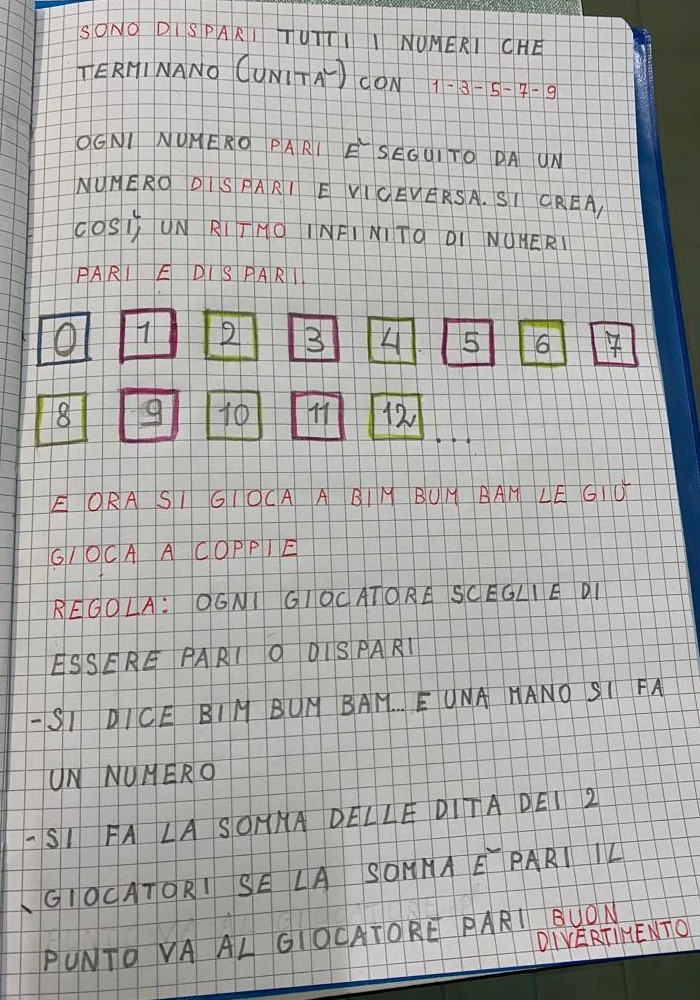 SONO DISPARI TUTTI I NUMERI CHE
TERMINANO (UNITA˘) CON 1-3-5-7-9
OGNI NUMERO PARI E˘ SEGUITO DA UN
NUMERO DISPARI E VICEVERSA. SI CREA,
COSI˘, UN RITMO INFINITO DI NUMERI
PARI E DISPARI.
0 1 2 3 4 5 6 7
8 9 10 11 12 ...
E ORA SI GIOCA A BIM BUM BAM LE GIÙ
GIOCA A COPPIE
REGOLA: OGNI GIOCATORE SCEGLIE DI
ESSERE PARI O DISPARI
-SI DICE BIM BUM BAM... E UNA MANO SI FA
UN NUMERO
-SI FA LA SOMMA DELLE DITA DEI 2
GIOCATORI SE LA SOMMA E˘ PARI IL
PUNTO VA AL GIOCATORE PARI BUON
DIVERTIMENTO